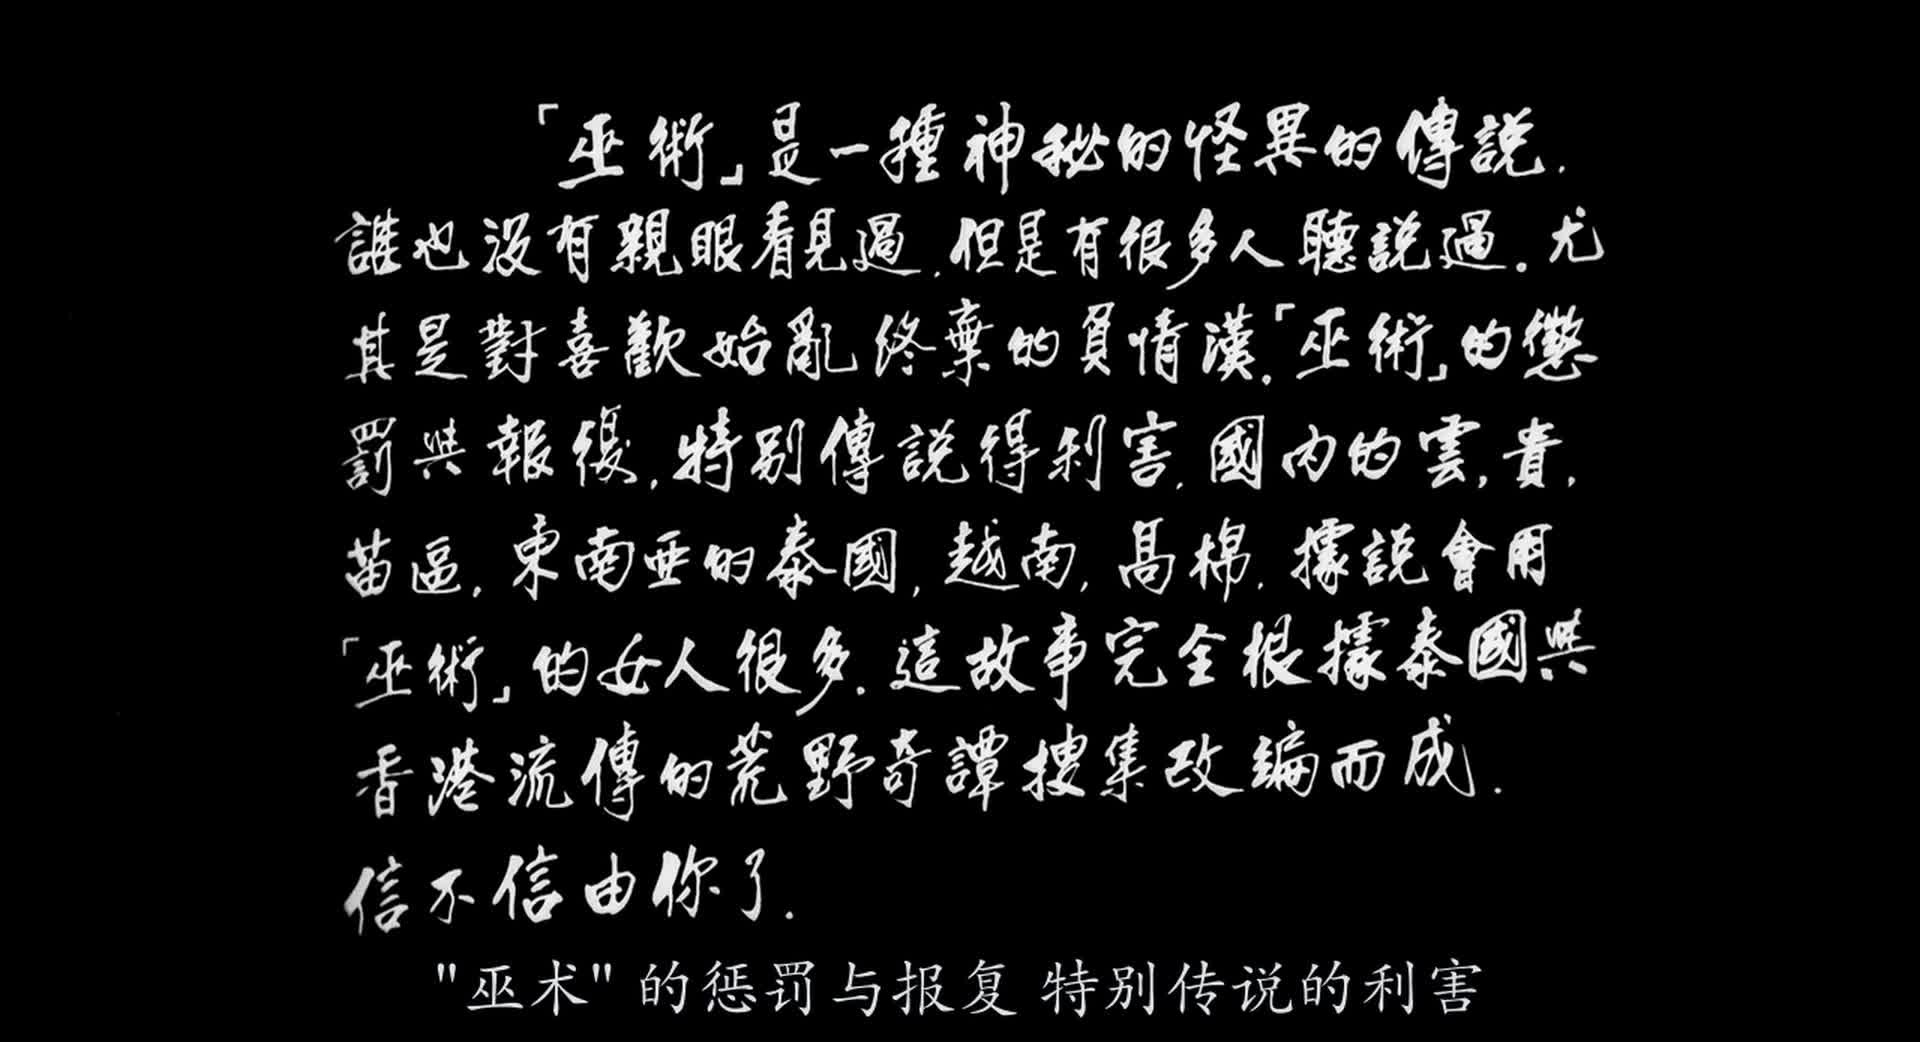 「巫術」是一種神秘的怪異的傳說.
誰也沒有親眼看見過.但是有很多人聽說過。尤
其是對喜歡始亂終棄的負情漢。「巫術」的懲
罰與報復,特別傳說得利害.國內的雲,貴,
苗區,東南亜的泰國,越南,高棉.據說會用
「巫術」的女人很多.這故事完全根據泰國與
香港流傳的荒野奇譚搜集改編而成.
信不信由你了.
"巫术" 的惩罚与报复 特别传说的利害